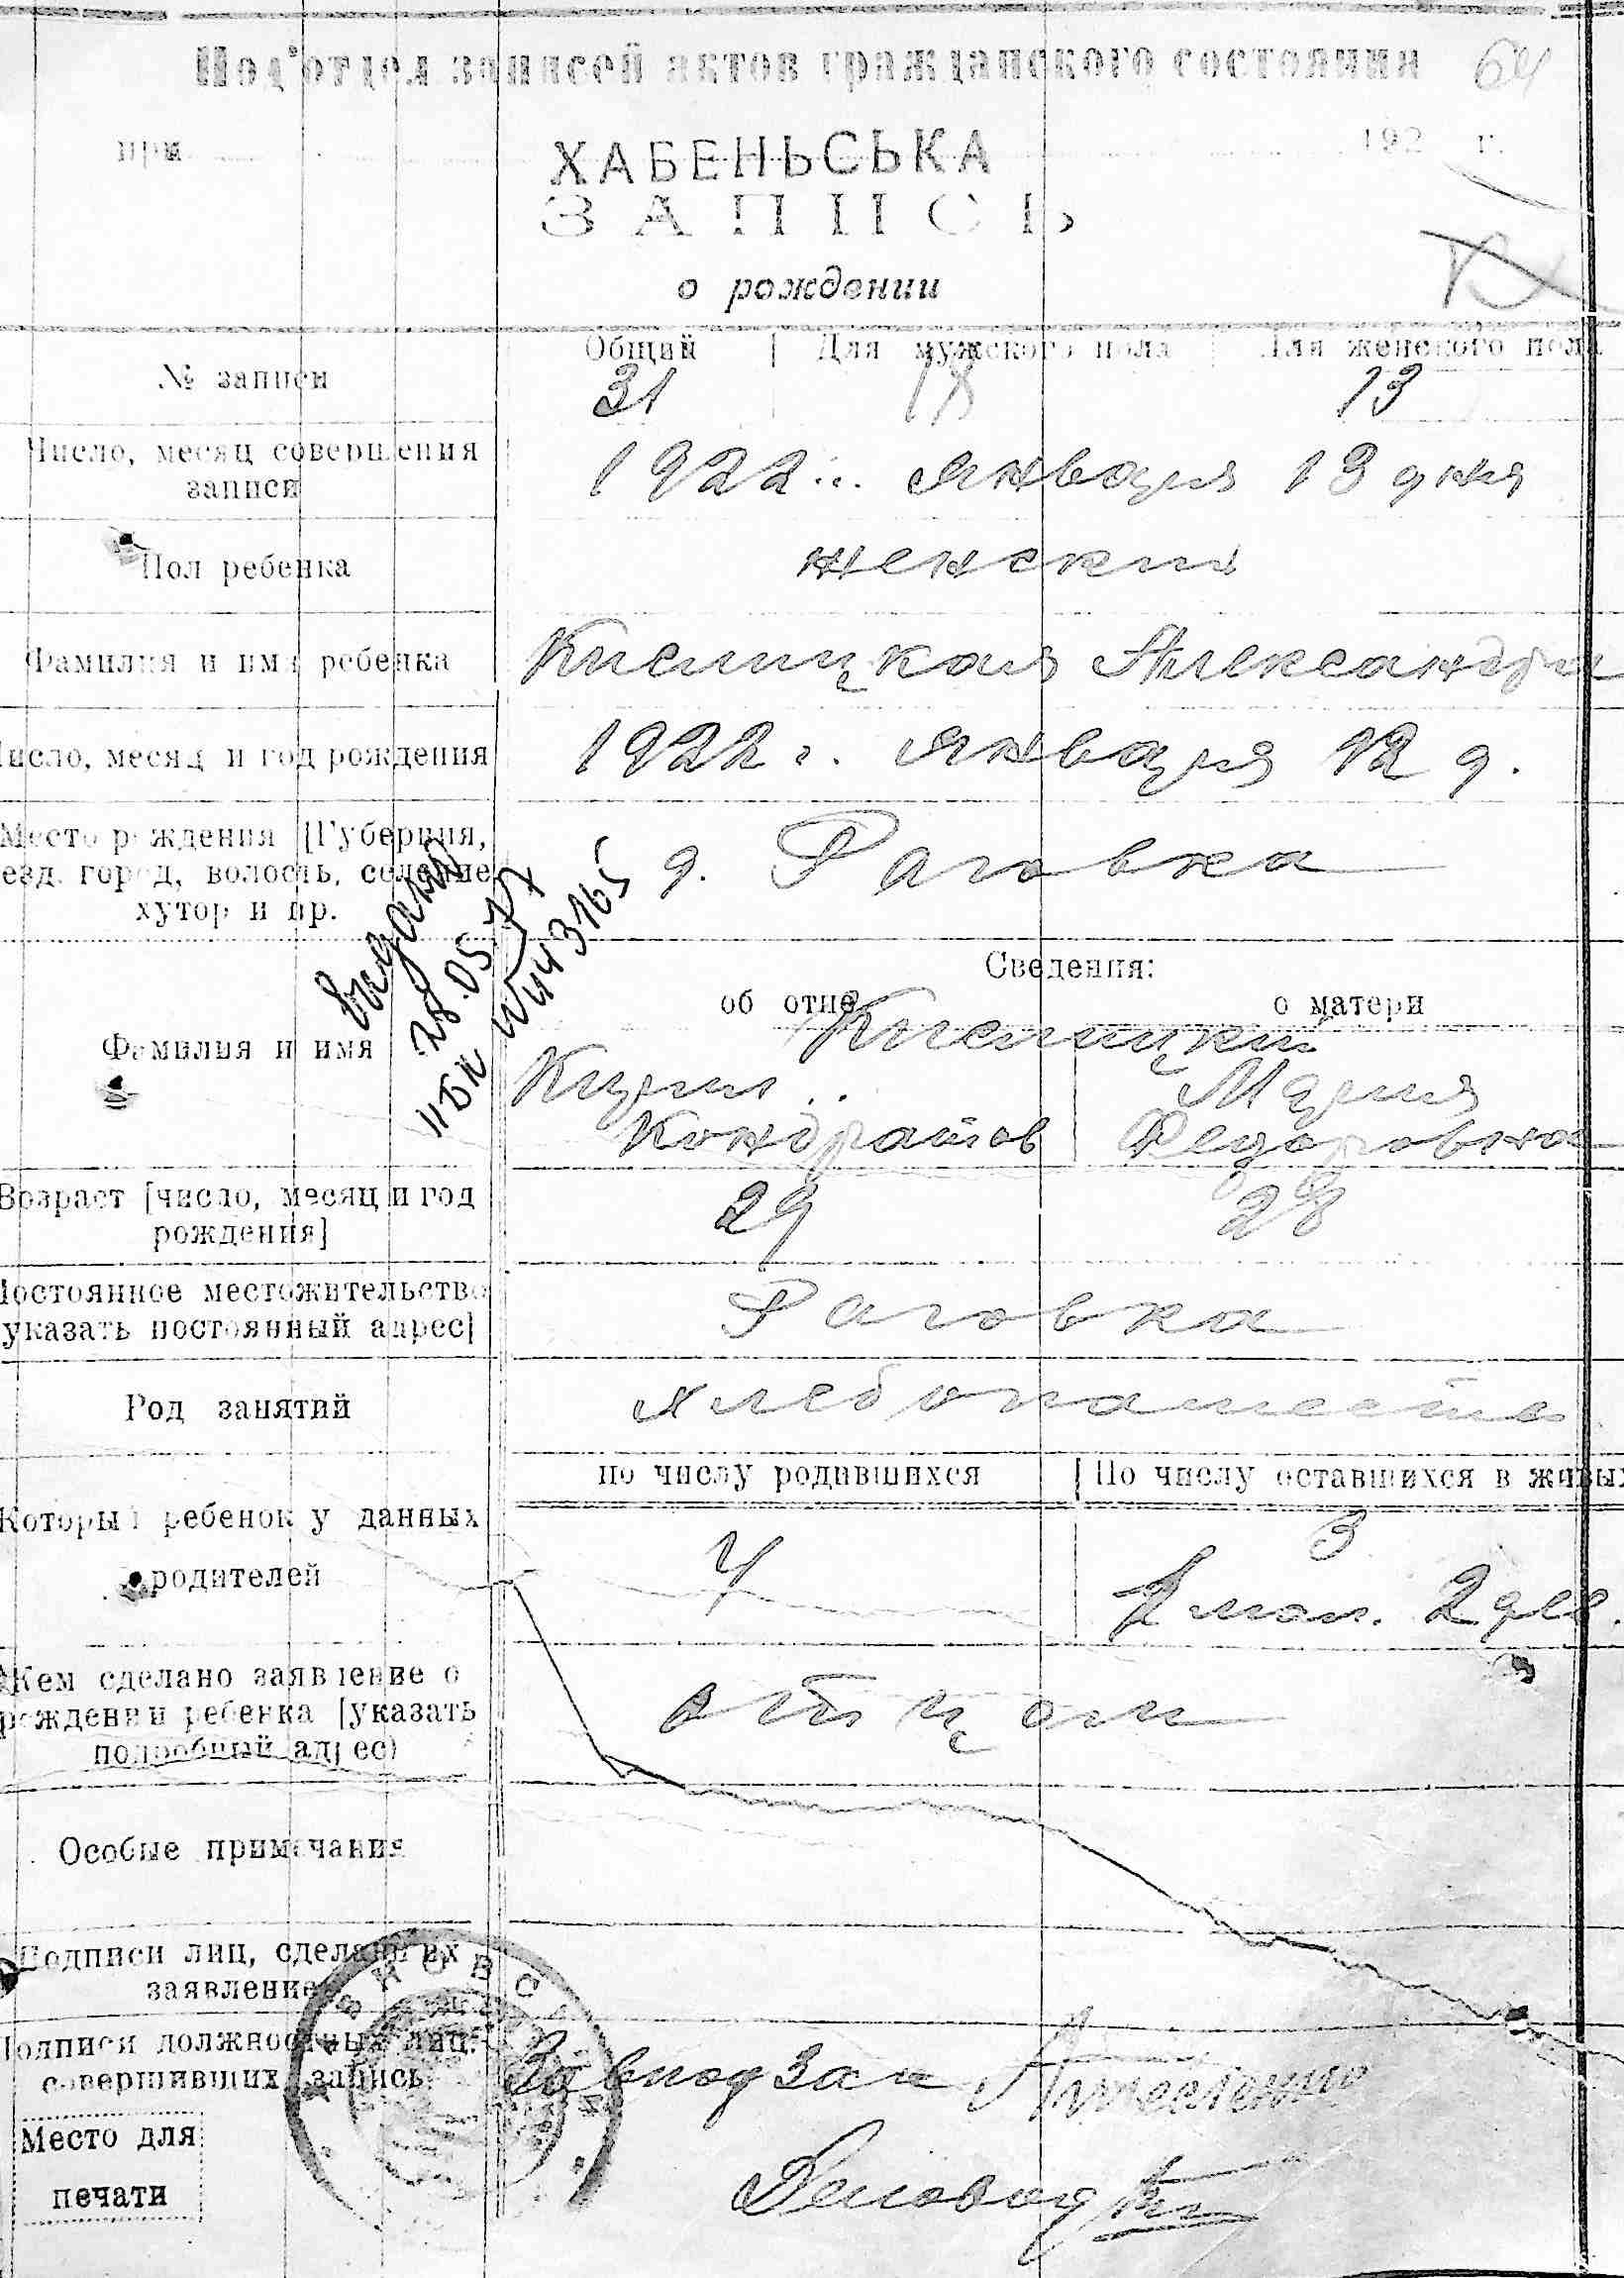 Под'отдел записей актов гражданского состояния 64
при 192 г.
ХАБЕНЬСЬКА
ЗАПИСЬ
о рождении
№ записи
Общий | Для мужского пола | Для женского пола
31 18 13
Число, месяц совершения
записи
1922 г. января 13 дня
Пол ребенка
женский
Фамилия и имя ребенка
Кислицкая Александра
Число, месяц и год рождения
1922 г. января 12 д.
Место рождения [Губерния,
уезд, город, волость, селение
хутор и пр.
д. Раговка
видано
28.05.77
ІІ БК № 443165
Сведения:
об отце
о матери
Фамилия и имя
Кислицкий
Кирил
Мария
Кондратов
Федоровна
Возраст [число, месяц и год
рождения]
29 28
Постоянное местожительство
указать постоянный адрес]
Раговка
Род занятий
хлебопашество
по числу родившихся | По числу оставшихся в живых
Который ребенок у данных
родителей
4 3
мал. 2 дев.
Кем сделано заявление о
рождении ребенка [указать
подробный адрес)
отцом
Особые примечания
Подписи лиц, сделавших
заявление
Подписи должностных лиц,
совершивших запись
Завподзаг
Деловод
Место для
печати